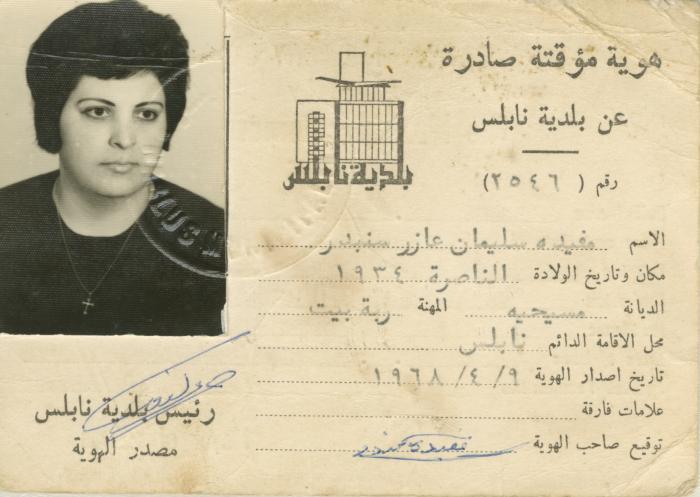 هوية مؤقتة صادرة
عن بلدية نابلس
بلدية نابلس
رقم ( ٢٥٤٦ )
الاسم مفيده سليمان عازر سنبدر
مكان وتاريخ الولادة الناصرة ١٩٣٤
الديانة مسيحيه المهنة ربة بيت
محل الاقامة الدائم نابلس
تاريخ اصدار الهوية ٩/ ٤/ ١٩٦٨
علامات فارقة
توقيع صاحب الهوية
رئيس بلدية نابلس
مصدر الهوية